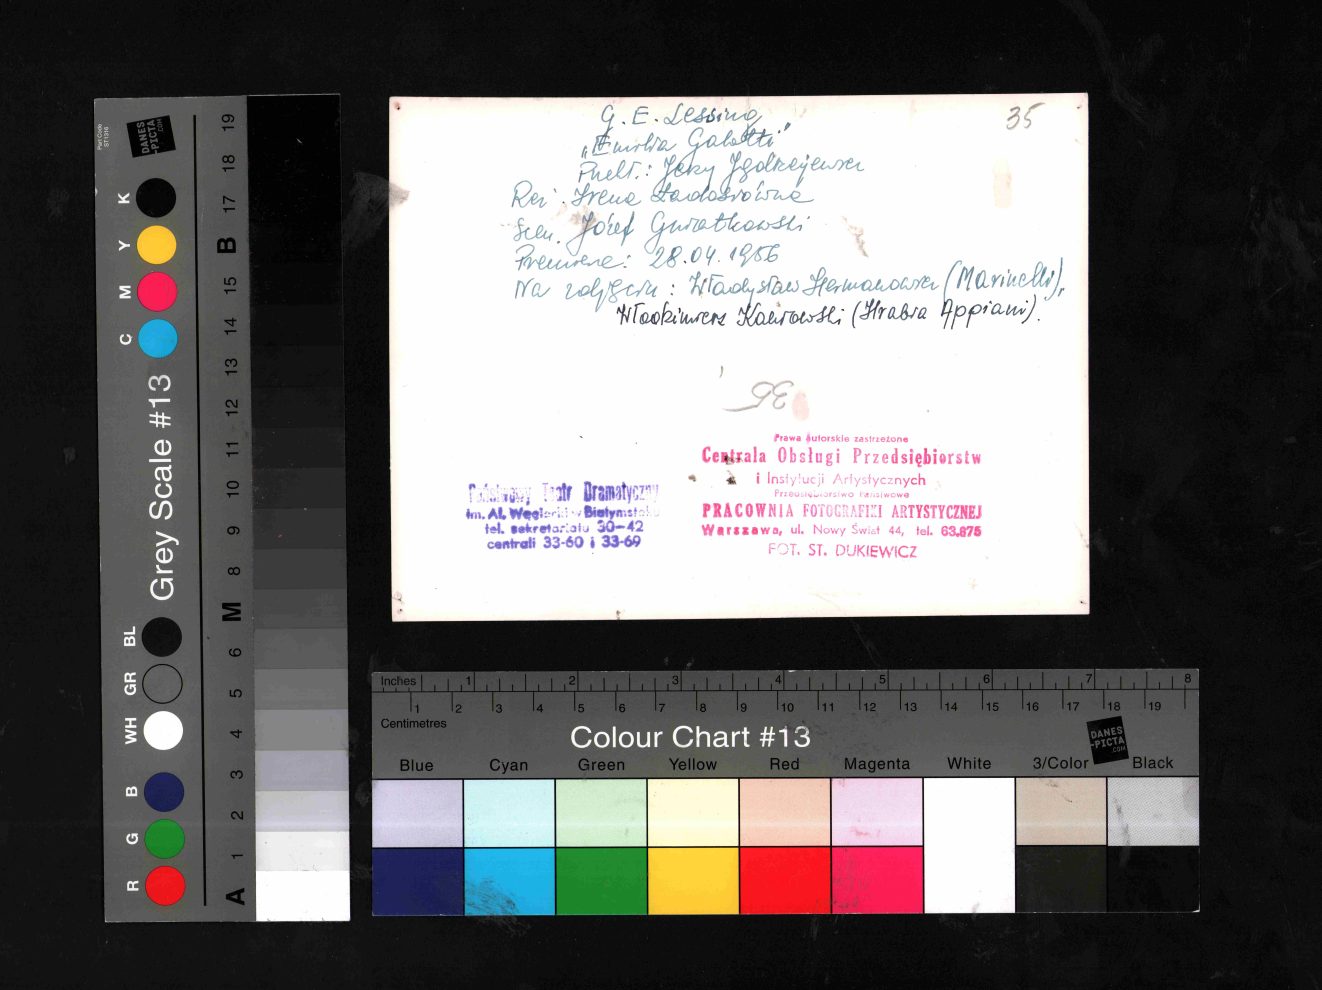 G. E. Lessing
„Emilia Galotti"
35
Przekł.: Jerzy Jędrzejewicz
Reż. Irena Ładosiówna
Scen. Józef Gwiatkowski
Premiera: 28.04.1956
Na zdjęciu: Władysław Hermanowicz (Marinelli),
Włodzimierz Kwaskowski (Hrabia Appiani).
35
Państwowy Teatr Dramatyczny
im. Al. Węgierki w Białymstoku
tel. sekretariatu 30-42
centrali 33-60 i 33-69
Prawa autorskie zastrzeżone
Centrala Obsługi Przedsiębiorstw
i Instytucji Artystycznych
Przedsiębiorstwo Państwowe
PRACOWNIA FOTOGRAFIKI ARTYSTYCZNEJ
Warszawa, ul. Nowy Świat 44, tel. 63.875
FOT. ST. DUKIEWICZ
Part Code ST1316
DANES-PICTA.COM
Grey Scale #13
K Y M C
BL GR WH B G R
19 18 17 B 15 14 13 12 11 10 9 8 M 6 5 4 3 2 1 A
Inches 1 2 3 4 5 6 7 8
1 2 3 4 5 6 7 8 9 10 11 12 13 14 15 16 17 18 19
Centimetres
Colour Chart #13
DANES-PICTA.COM
Blue Cyan Green Yellow Red Magenta White 3/Color Black